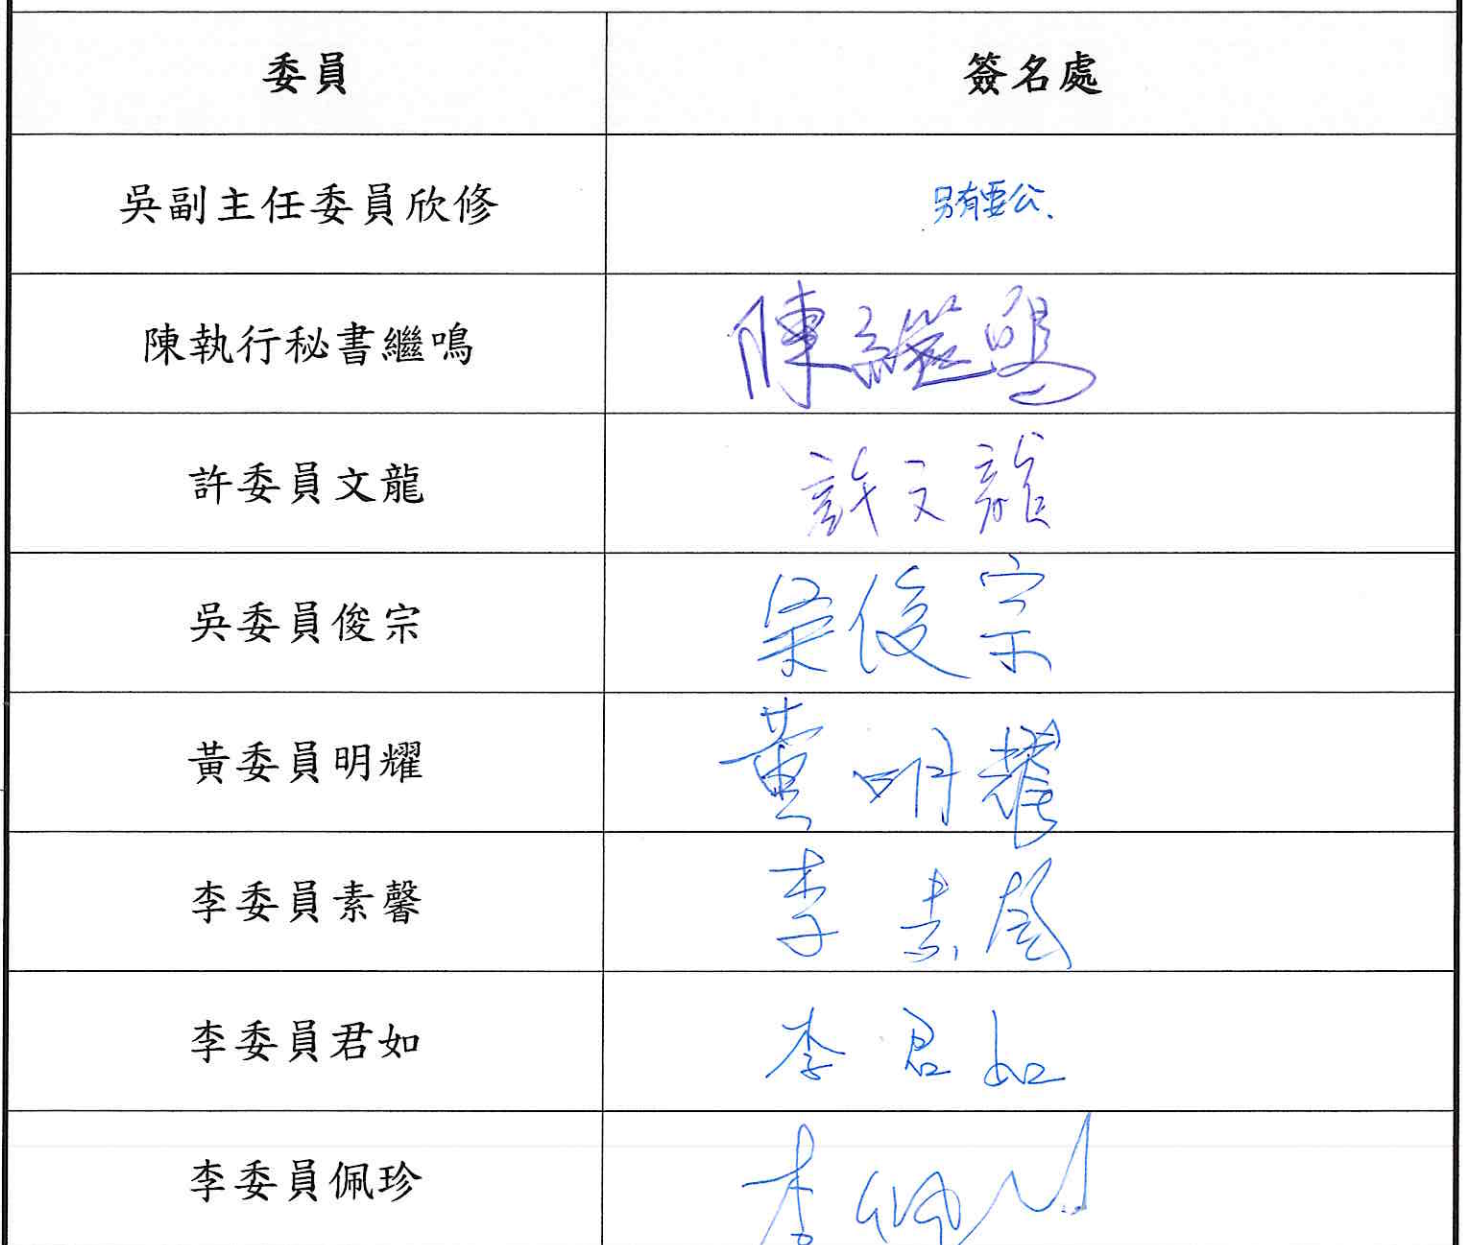 委員 簽名處
吳副主任委員欣修 另有要公、
陳執行秘書繼鳴 陳繼鳴
許委員文龍 許文龍
吳委員俊宗 吳俊宗
黃委員明耀 黃明耀
李委員素馨 李素馨
李委員君如 李君如
李委員佩珍 李佩珍